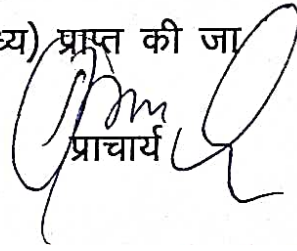 ध्य) प्राप्त की जा
प्राचार्य